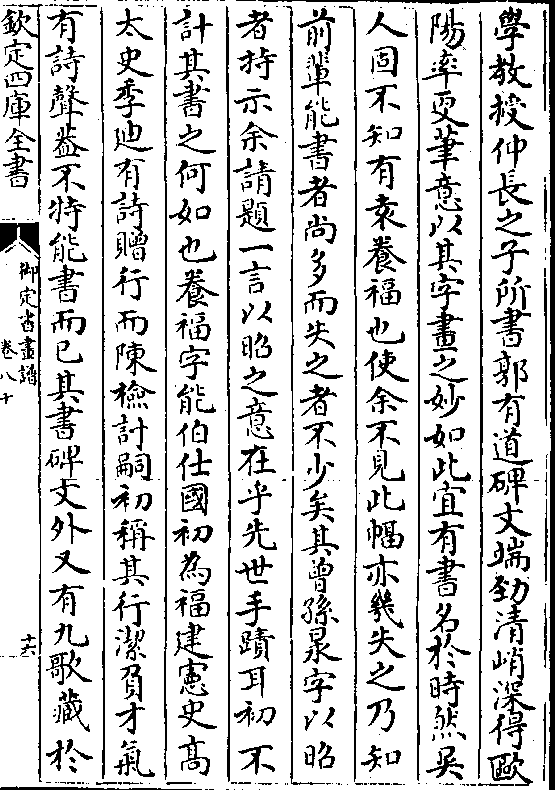 學教授仲長之子所書郭有道碑文端勁清峭深得歐
陽率更筆意以其字畫之妙如此宜有書名於時然吳
人固不知有袁養福也使余不見此幅亦幾失之乃知
前輩能書者尚多而失之者不少矣其曾孫泉字以昭
者持示余請題一言以昭之意在乎先世手蹟耳初不
計其書之何如也養福字能伯仕國初為福建憲史髙
太史季迪有詩贈行而陳檢計嗣初稱其行潔負才氣
有詩聲葢不特能書而已其書碑文外又有九歌藏於
欽定四庫全書
御定書畫譜
卷八十
十六